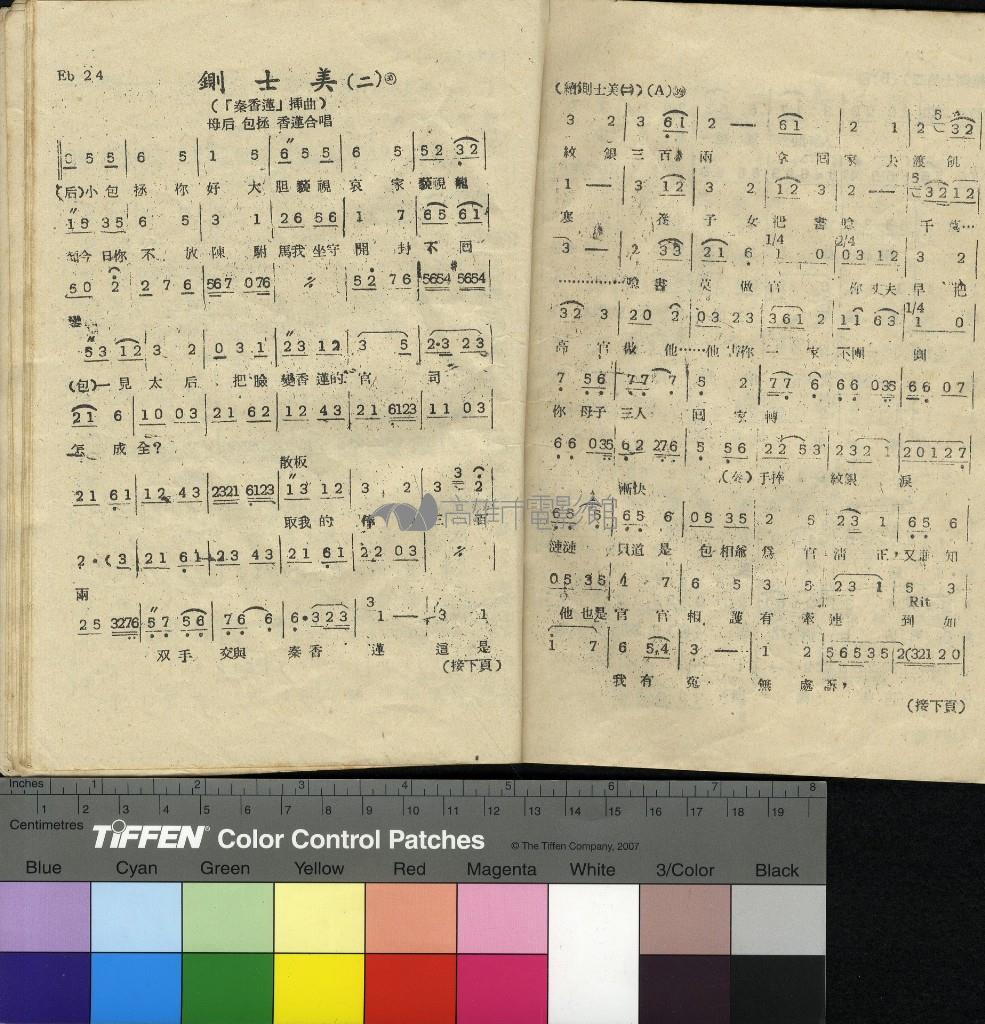 Eb 24
鍘士美(二)㊳
(「秦香蓮」挿曲)
母后 包拯 香蓮合唱
0 5 5 | 6 5 | 1 5 | 6 5 5 | 6 5 | 5 2 3 2
(后)小包拯你好大胆藐視哀家藐視龍
1 5 3 5 | 6 5 | 3 1 | 2 6 5 6 | 1 7 | 6 5 6 1
今日你不放陳駙馬我坐守開封不回
5 0 2 | 2 7 6 | 5 6 7 0 7 6 | 𝄎 | 5 2 7 6 | 5654 5654
鑾
5 3 1 2 | 3 2 | 0 3 1 | 2 3 1 2 | 3 5 | 2·3 2 3
(包)一見太后把臉變香蓮的官司
2 1 6 | 1 0 0 3 | 2 1 6 2 | 1 2 4 3 | 2 1 6123 | 1 1 0 3
怎成全?
散板
2 1 6 1 | 1 2 4 3 | 2321 6123 | 1 3 1 2 | 3 2 | 3 3 2
取我的俸三百
2·(3 | 2 1 6 1 | 2 3 4 3 | 2 1 6 1 | 2 2 0 3 | 𝄎
兩
2 5 3276 | 5 7 5 6 | 7 6 6 | 6·3 2 3 | 3 1 — | 3 1
双手交與秦香蓮這是
(接下頁)
(續鍘士美㊁)(A)㊴
3 2 | 3 6 1 | 2 — | 6 1 | 2 1 | 2 5 3 2
紋銀三百兩拿回家夫渡飢
1 — | 3 1 2 | 3 2 | 1 2 3 | 2 — | 5 3 2 1 2
寒養子女把書唸千萬…
1/4 2/4
3 — | 2 3 3 | 2 1 6 | 1 0 | 0 3 1 2 | 3 2
…………唸書莫做官你丈夫早把
1/4
3 2 3 | 2 0 2 | 0 3 2 3 | 3 6 1 2 | 1 1 6 3 | 1 0
高官做他……他害你一家不團圓
7 5 6 | 7 7 7 | 5 2 | 7 7 6 | 6 6 0 3 5 | 6 6 0 7
你母子三人回家轉
6 6 0 3 5 | 6 2 2 7 6 | 5 5 6 | 2 2 5 3 | 2 3 2 1 | 2 0 1 2 7
(秦)手捧紋銀淚
漸快
6 5 5 | 6 5 6 | 0 5 3 5 | 2 5 | 2 3 1 | 6 5 6
漣漣只道是包相爺為官淸正,又誰知
0 5 3 5 | 4 7 | 6 5 | 3 5 | 2 3 1 | 5 3
Rit
他也是官官相護有牽連到如
1 7 | 6 5.4 | 3 — | 1 2 | 5 6 5 3 5 | 2(321 2 0
我有冤無處訴,
(接下頁)
高雄市電影館
Inches 1 2 3 4 5 6 7 8
1 2 3 4 5 6 7 8 9 10 11 12 13 14 15 16 17 18 19
Centimetres
TIFFEN® Color Control Patches © The Tiffen Company, 2007
Blue Cyan Green Yellow Red Magenta White 3/Color Black